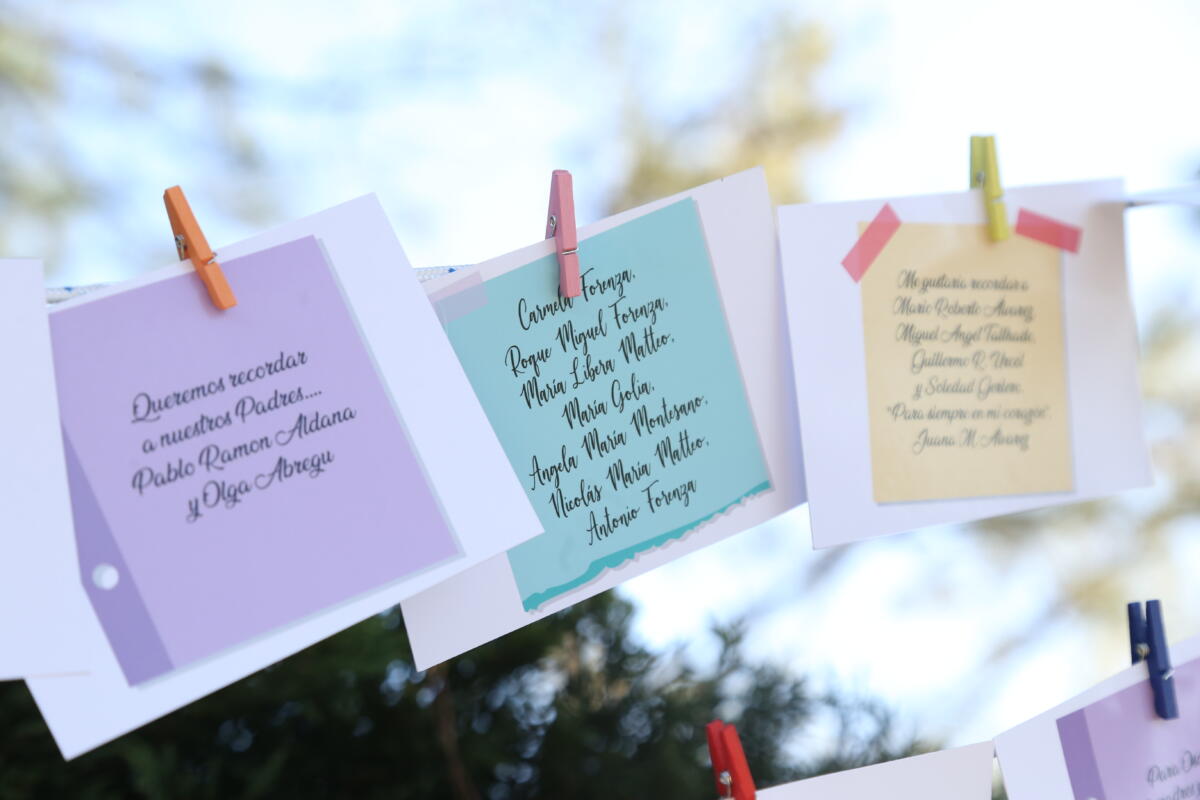 Queremos recordar
a nuestros Padres....
Pablo Ramon Aldana
y Olga Abregu
Carmela Forenza,
Roque Miguel Forenza,
María Libera Matteo,
María Golia,
Angela María Montesano,
Nicolás María Matteo,
Antonio Forenza
Me gustaria recordar a
Mario Roberto Alvarez
Miguel Angel
Guillermo R.
y Soledad
"Para siempre en mi corazón".
Juana M. Alvarez
Para